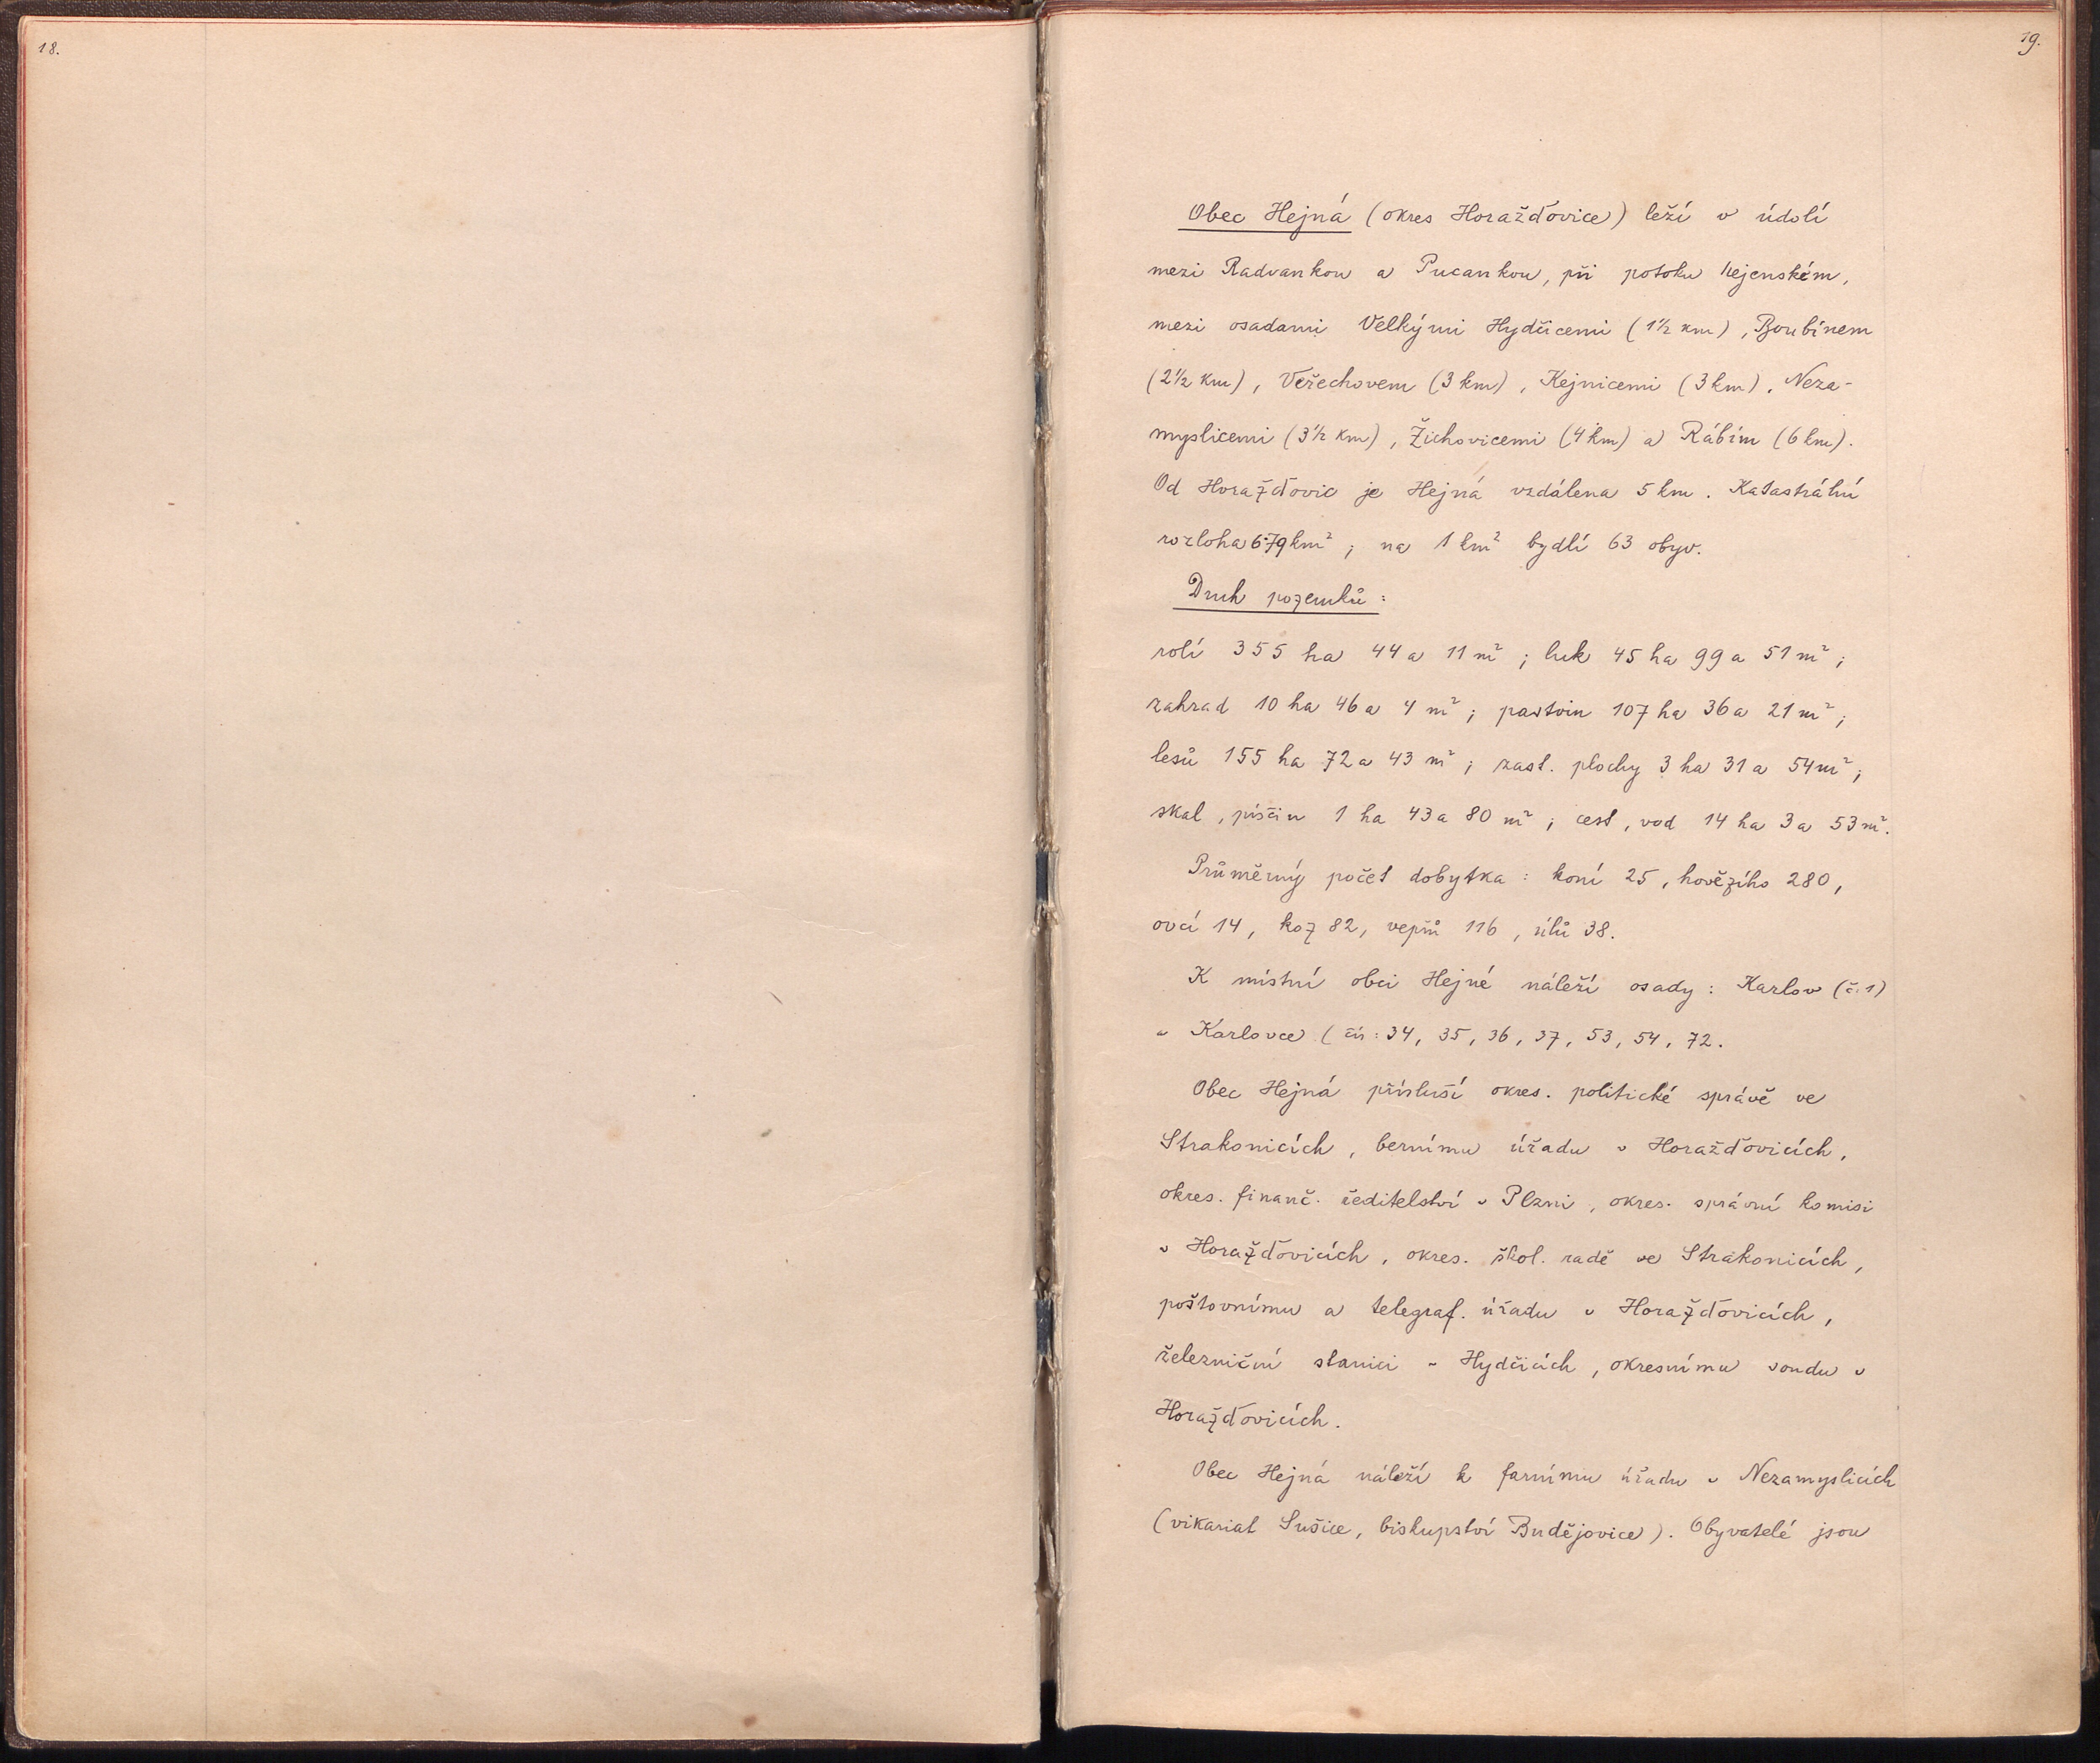 18.
19.
Obec Hejná (okres Horažďovice) leží v údolí
mezi Radvankou a Pucankou, při potoku hejenském,
mezi osadami Velkými Hydčicemi (1½ km), Boubínem
(2½ km), Veřechovem (3 km), Kejnicemi (3 km), Neza-
myslicemi (3½ km), Žichovicemi (4 km) a Rábím (6 km).
Od Horažďovic je Hejná vzdálena 5 km. Katastrální
rozloha 6·79 km²; na 1 km² bydlí 63 obyv.
Druh pozemků:
rolí 355 ha 44 a 11 m²; luk 45 ha 99 a 51 m²;
zahrad 10 ha 46 a 4 m²; pastvin 107 ha 36 a 21 m²;
lesů 155 ha 72 a 43 m²; zast. plochy 3 ha 31 a 54 m²;
skal, písčin 1 ha 43 a 80 m²; cest, vod 14 ha 3 a 53 m².
Průměrný počet dobytka: koní 25, hovězího 280,
ovcí 14, koz 82, vepřů 116, úlů 38.
K místní obci Hejné náleží osady: Karlov (č. 1)
a Karlovce (čís: 34, 35, 36, 37, 53, 54, 72.
Obec Hejná přísluší okres. politické správě ve
Strakonicích, bernímu úřadu v Horažďovicích,
okres. finanč. ředitelství v Plzni, okres. správní komisi
v Horažďovicích, okres. škol. radě ve Strakonicích,
poštovnímu a telegraf. úřadu v Horažďovicích,
železniční stanici v Hydčicích, okresnímu soudu v
Horažďovicích.
Obec Hejná náleží k farnímu úřadu v Nezamyslicích
(vikariat Sušice, biskupství Budějovice). Obyvatelé jsou